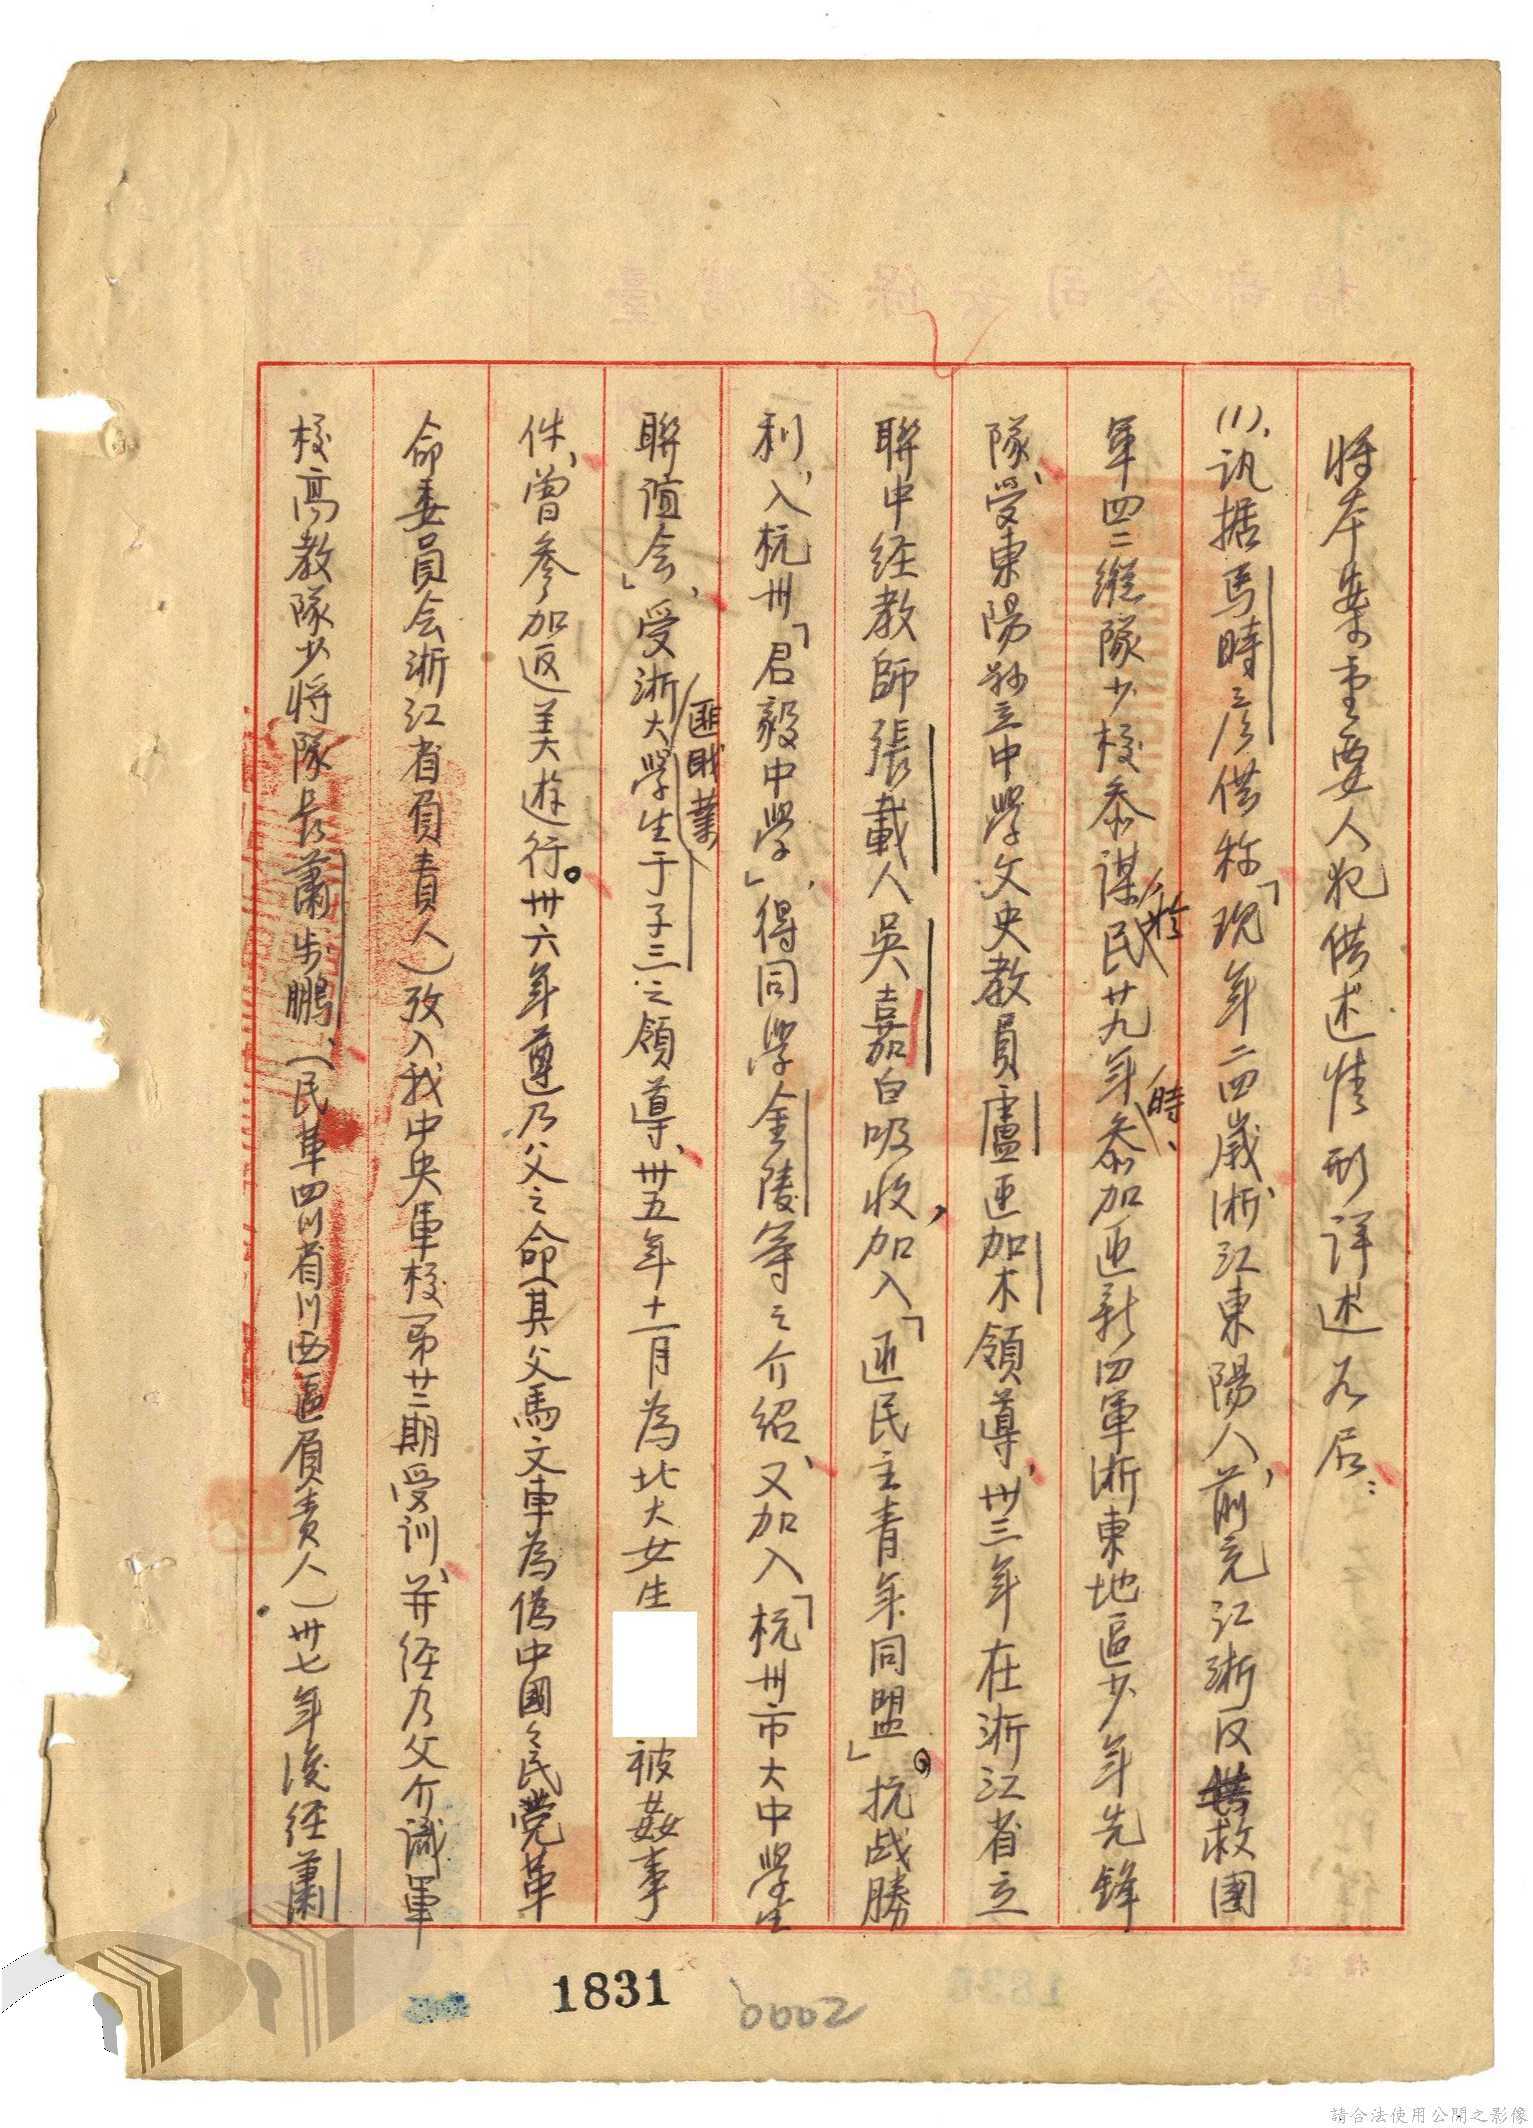 將本案重要人犯供述情形詳述於后：
(1)、訊据馬時彦供称「現年二四歲浙江東陽人，前充江浙反共救国
軍四二縱隊少校參謀於民廿九年時、參加匪新四軍浙東地區少年先鋒
隊、受東陽縣立中學文史教員盧匪加木領導，卅三年在浙江省立
聯中経教師張載人吳嘉白吸收，加入「匪民主青年同盟」。抗战勝
利，入杭州「君毅中學」得同學金陵等之介紹、又加入「杭州市大中學生
聯誼会」，受浙大匪職業學生于子三之領導、卅五年十二月為北大女生 被姦事
件、曾參加返美遊行。卅六年遵乃父之命（其父馬文車為偽中國国民党革
命委員会浙江省負責人）攷入我中央軍校（第廿二期受訓、并経乃父介識軍
校高教隊少將隊長蕭步鵬、（民革四川省川西區負責人）卅七年後経蕭
1831
0002
請合法使用公開之影像